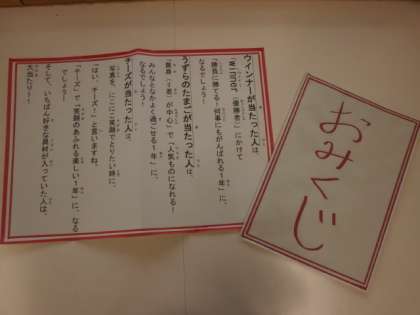 ウインナーが当たった人は、
「勝者＝winner（優勝者）」にかけて
「勝負に勝てる！何事にもがんばれる１年」に、
なるでしょう！
うずらのたまごが当たった人は、
「黄身（＝君）が中心」で「人気ものになれる！
みんなとなかよく過ごせる１年」に、
なるでしょう！
チーズが当たった人は、
写真を、にこにこ笑顔でとりたい時に、
「はい、チーズ！」と言いますね。
「チーズ」で「笑顔のあふれる楽しい１年」に、なる
でしょう！
そして、いちばん好きな具材が入っていた人は、
大当たり！！
おみくじ